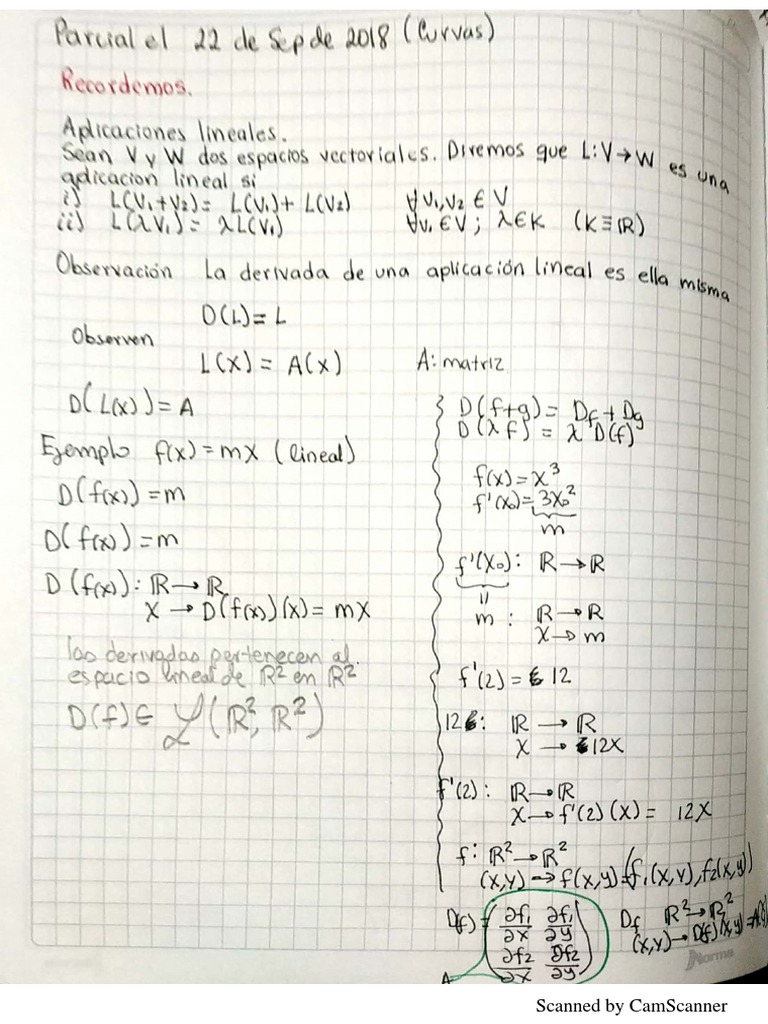 Parcial el 22 de Sep de 2018 (Curvas)
Recordemos.
Aplicaciones lineales.
Sean V y W dos espacios vectoriales. Diremos que L: V → W es una
aplicacion lineal si
i) L(V₁+V₂) = L(V₁) + L(V₂) ∀ V₁,V₂ ∈ V
ii) L(λV₁) = λL(V₁) ∀V₁ ∈ V ; λ∈K (K≡ℝ)
Observación La derivada de una aplicación lineal es ella misma
D(L) = L
Observen
L(x) = A(x) A: matriz
D(L(x)) = A
Ejemplo f(x) = mx (lineal)
D(f(x)) = m
D(f(x)) = m
D(f(x)): ℝ → ℝ
x → D(f(x))(x) = mx
las derivadas pertenecen al
espacio lineal de ℝ² en ℝ²
D(f) ∈ ℒ(ℝ², ℝ²)
D(f+g) = Df + Dg
D(λf) = λ D(f)
f(x) = x³
f'(x₀) = 3x₀²
m
f'(x₀): ℝ → ℝ
=
m : ℝ → ℝ
x → m
f'(2) = 12
12 : ℝ → ℝ
x → 12x
f'(2): ℝ → ℝ
x → f'(2)(x) = 12x
f: ℝ² → ℝ²
(x,y) → f(x,y) = (f₁(x,y), f₂(x,y))
D(f) = ( ∂f₁/∂x ∂f₁/∂y
∂f₂/∂x ∂f₂/∂y )
A
Df ℝ² → ℝ²
(x,y) → D(f)(x,y) =
Norma
Scanned by CamScanner